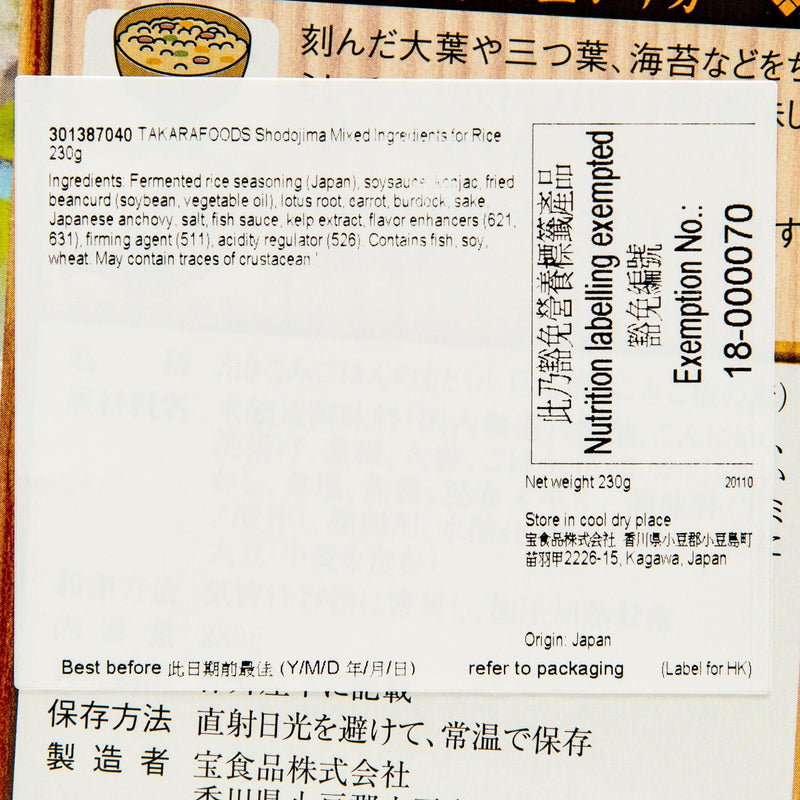 刻んだ大葉や三つ葉、海苔などを
301387040 TAKARAFOODS Shodojima Mixed Ingredients for Rice
230g
Ingredients: Fermented rice seasoning (Japan), soysauce, konjac, fried
beancurd (soybean, vegetable oil), lotus root, carrot, burdock, sake,
Japanese anchovy, salt, fish sauce, kelp extract, flavor enhancers (621,
631), firming agent (511), acidity regulator (526). Contains fish, soy,
wheat. May contain traces of crustacean.
此乃豁免營養標籤產品
Nutrition labelling exempted
豁免編號
Exemption No.:
18-000070
Net weight 230g 20110
Store in cool dry place
宝食品株式会社 香川県小豆郡小豆島町
苗羽甲2226-15, Kagawa, Japan
Origin: Japan
Best before 此日期前最佳 (Y/M/D 年/月/日) refer to packaging (Label for HK)
保存方法 直射日光を避けて、常温で保存
製造者 宝食品株式会社